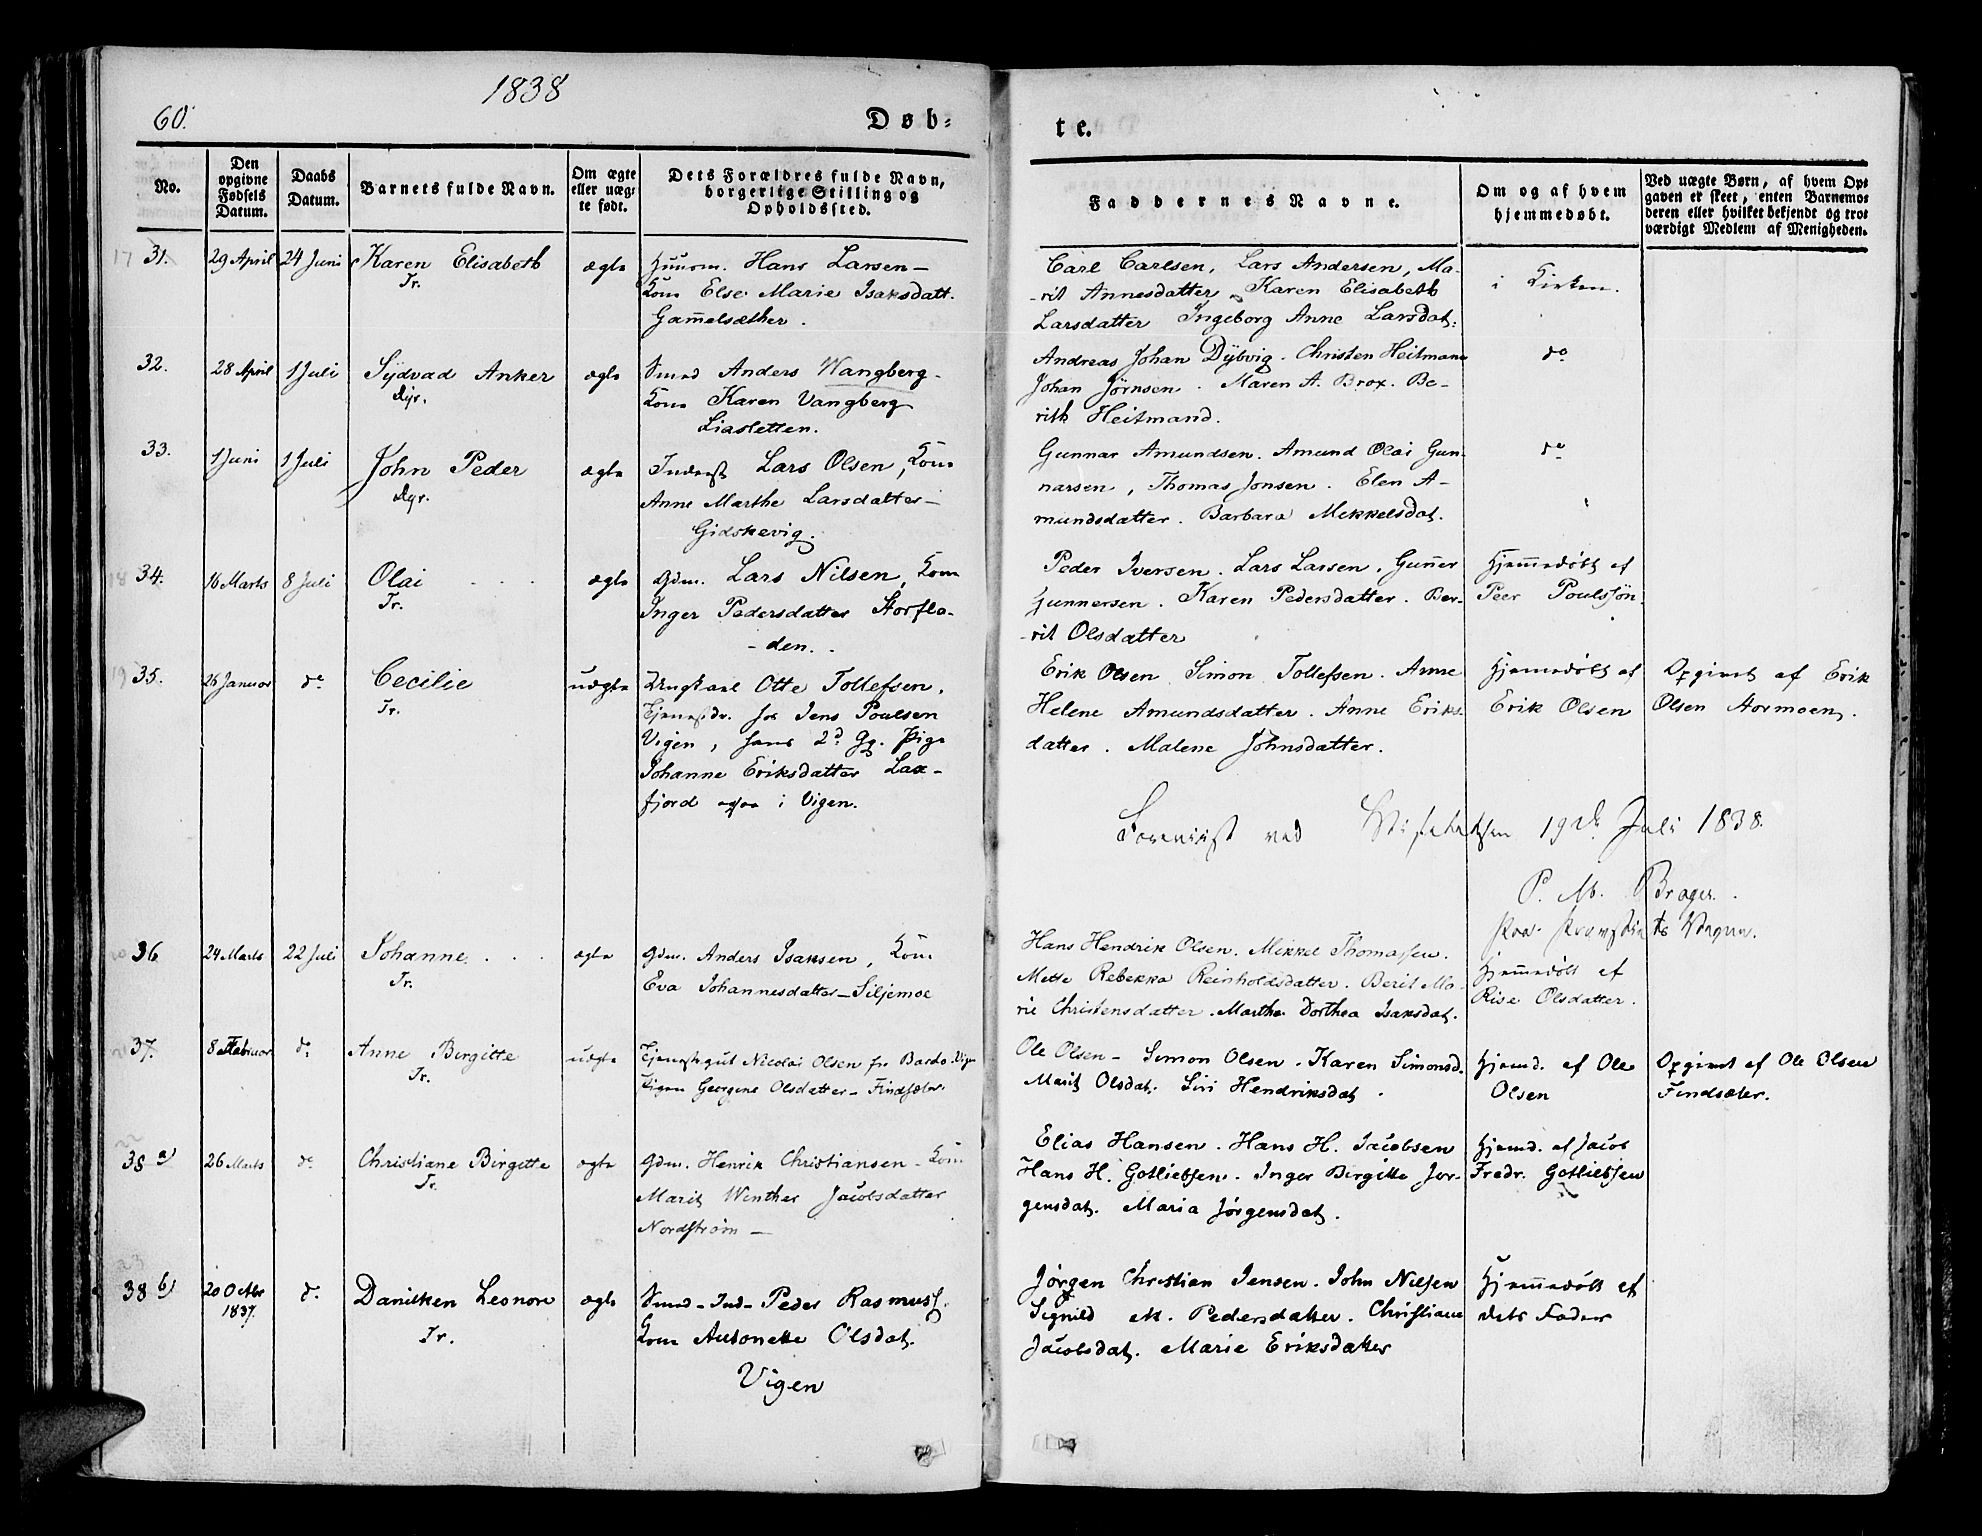 1838
60.
Døb-
te.
No.
Den opgivne Fødsels Datum.
Daabs Datum.
Barnets fulde Navn.
Om ægte eller uægte født.
Dets Forældres fulde Navn, borgerlige Stilling og Opholdssted.
Faddernes Navne.
Om og af hvem hjemmedøbt.
Ved uægte Børn, af hvem Opgaven er skeet, enten Barnemoderen eller hvilket bekjendt og troværdigt Medlem af Menigheden.
17 31. 29 April 24 Juni Karen Elisabeth ægte Huusm. Hans Larsen –
Tr. Kone Else Marie Isaksdatt.
Gammelsæther.
Carl Carlsen, Lars Andersen, Ma-
-rit Annesdatter, Karen Elisabeth
Larsdatter Ingeborg Anne Larsdat:
i Kirken.
32. 28 April 1 Juli Sydvad Anker ægte Smed Anders Wangberg-
Dyr. Kone Karen Vangberg
Liasletten.
Andreas Johan Dÿbvig. Christen Heitmann
Johan Jørnsen. Maren A. Brox. Be-
rith Heitmand.
do
33. 1 Juni 1 Juli John Peder ægte Inderst Lars Olsen, Kone
Dyr. Anne Marthe Larsdatter –
Gidskevig.
Gunnar Amundsen. Amund Olai Gun-
narsen, Thomas Jonsen. Elen A-
mundsdatter. Barbara Mekkelsdat.
do
18 34. 16 Marts 8 Juli Olai ægte Gdm. Lars Nilsen, Kone
Tr. Inger Pedersdatter Storflo-
-den.
Peder Iversen. Lars Larsen. Gunner
Gunnersen. Karen Pedersdatter. Ber-
-rit Olsdatter
Hjemmedøbt af
Peer Poulsjøn.
19 35. 26 Januar do Cecilie uægte Ungkarl Otte Tollefsen.
Tr. Tjenestdr. for Jens Poulsen
Vigen, hans 2d Gg. Pige
Johanne Eriksdatter Lax-
fjord ogsaa i Vigen.
Erik Olsen Simon Tollefsen. Anne
Helene Amundsdatter. Anne Eriks-
datter. Malene Johnsdatter.
Hjemmedøbt af
Erik Olsen
Opgivet af Erik
Olsen Stormoen.
Foreviist ved 19de Juli 1838.
P. M. Brager.
36 24 Marts 22 Juli Johanne ægte Gdm. Anders Isaksen, Kone
Tr. Eva Johannesdatter – Siljemoe
Hans Hendrik Olsen. Mikkel Thomassen.
Mette Rebekka Reinholdsdatter. Berit Ma-
rie Christensdatter. Marthe Dorthea Isaksdat.
Hjemmedøbt af
Rise Olsdatter.
37. 8 Februar do Anne Birgitte uægte Tjenestegut Nicolai Olsen fra Bardo. Vigen
Tr. Pigen Georgine Olsdatter – Findsæter
Ole Olsen – Simon Olsen. Karen Simonsd.
Marit Olsdat. Siri Hendriksdat.
Hjemd. af Ole
Olsen
Opgivet af Ole Olsen
Findsæter.
22
38 a) 26 Marts do Christiane Birgitte ægte Gdm. Henrik Christiansen – Kone
Tr. Marit Winther Jacobsdatter
Nordstrøm –
Elias Hansen. Hans H. Jacobsen
Hans H. Gotliebsen. Inger Birgitte Jør-
gensdat. Maria Jørgensdat.
Hjemd. af Jacob
Fredr. Gotliebsen
23
38 b) 20 Octbr do Danikken Leonore ægte Smed – Ind – Peder Rasmuss.
1837. Tr. Kone Antonette Olsdat.
Vigen
Jørgen Christian Jensen. John Nilsen
Signild M. Pedersdatter. Christiane
Jacobsdat. Marie Eriksdatter
Hjemmedøbt af
dets Fader